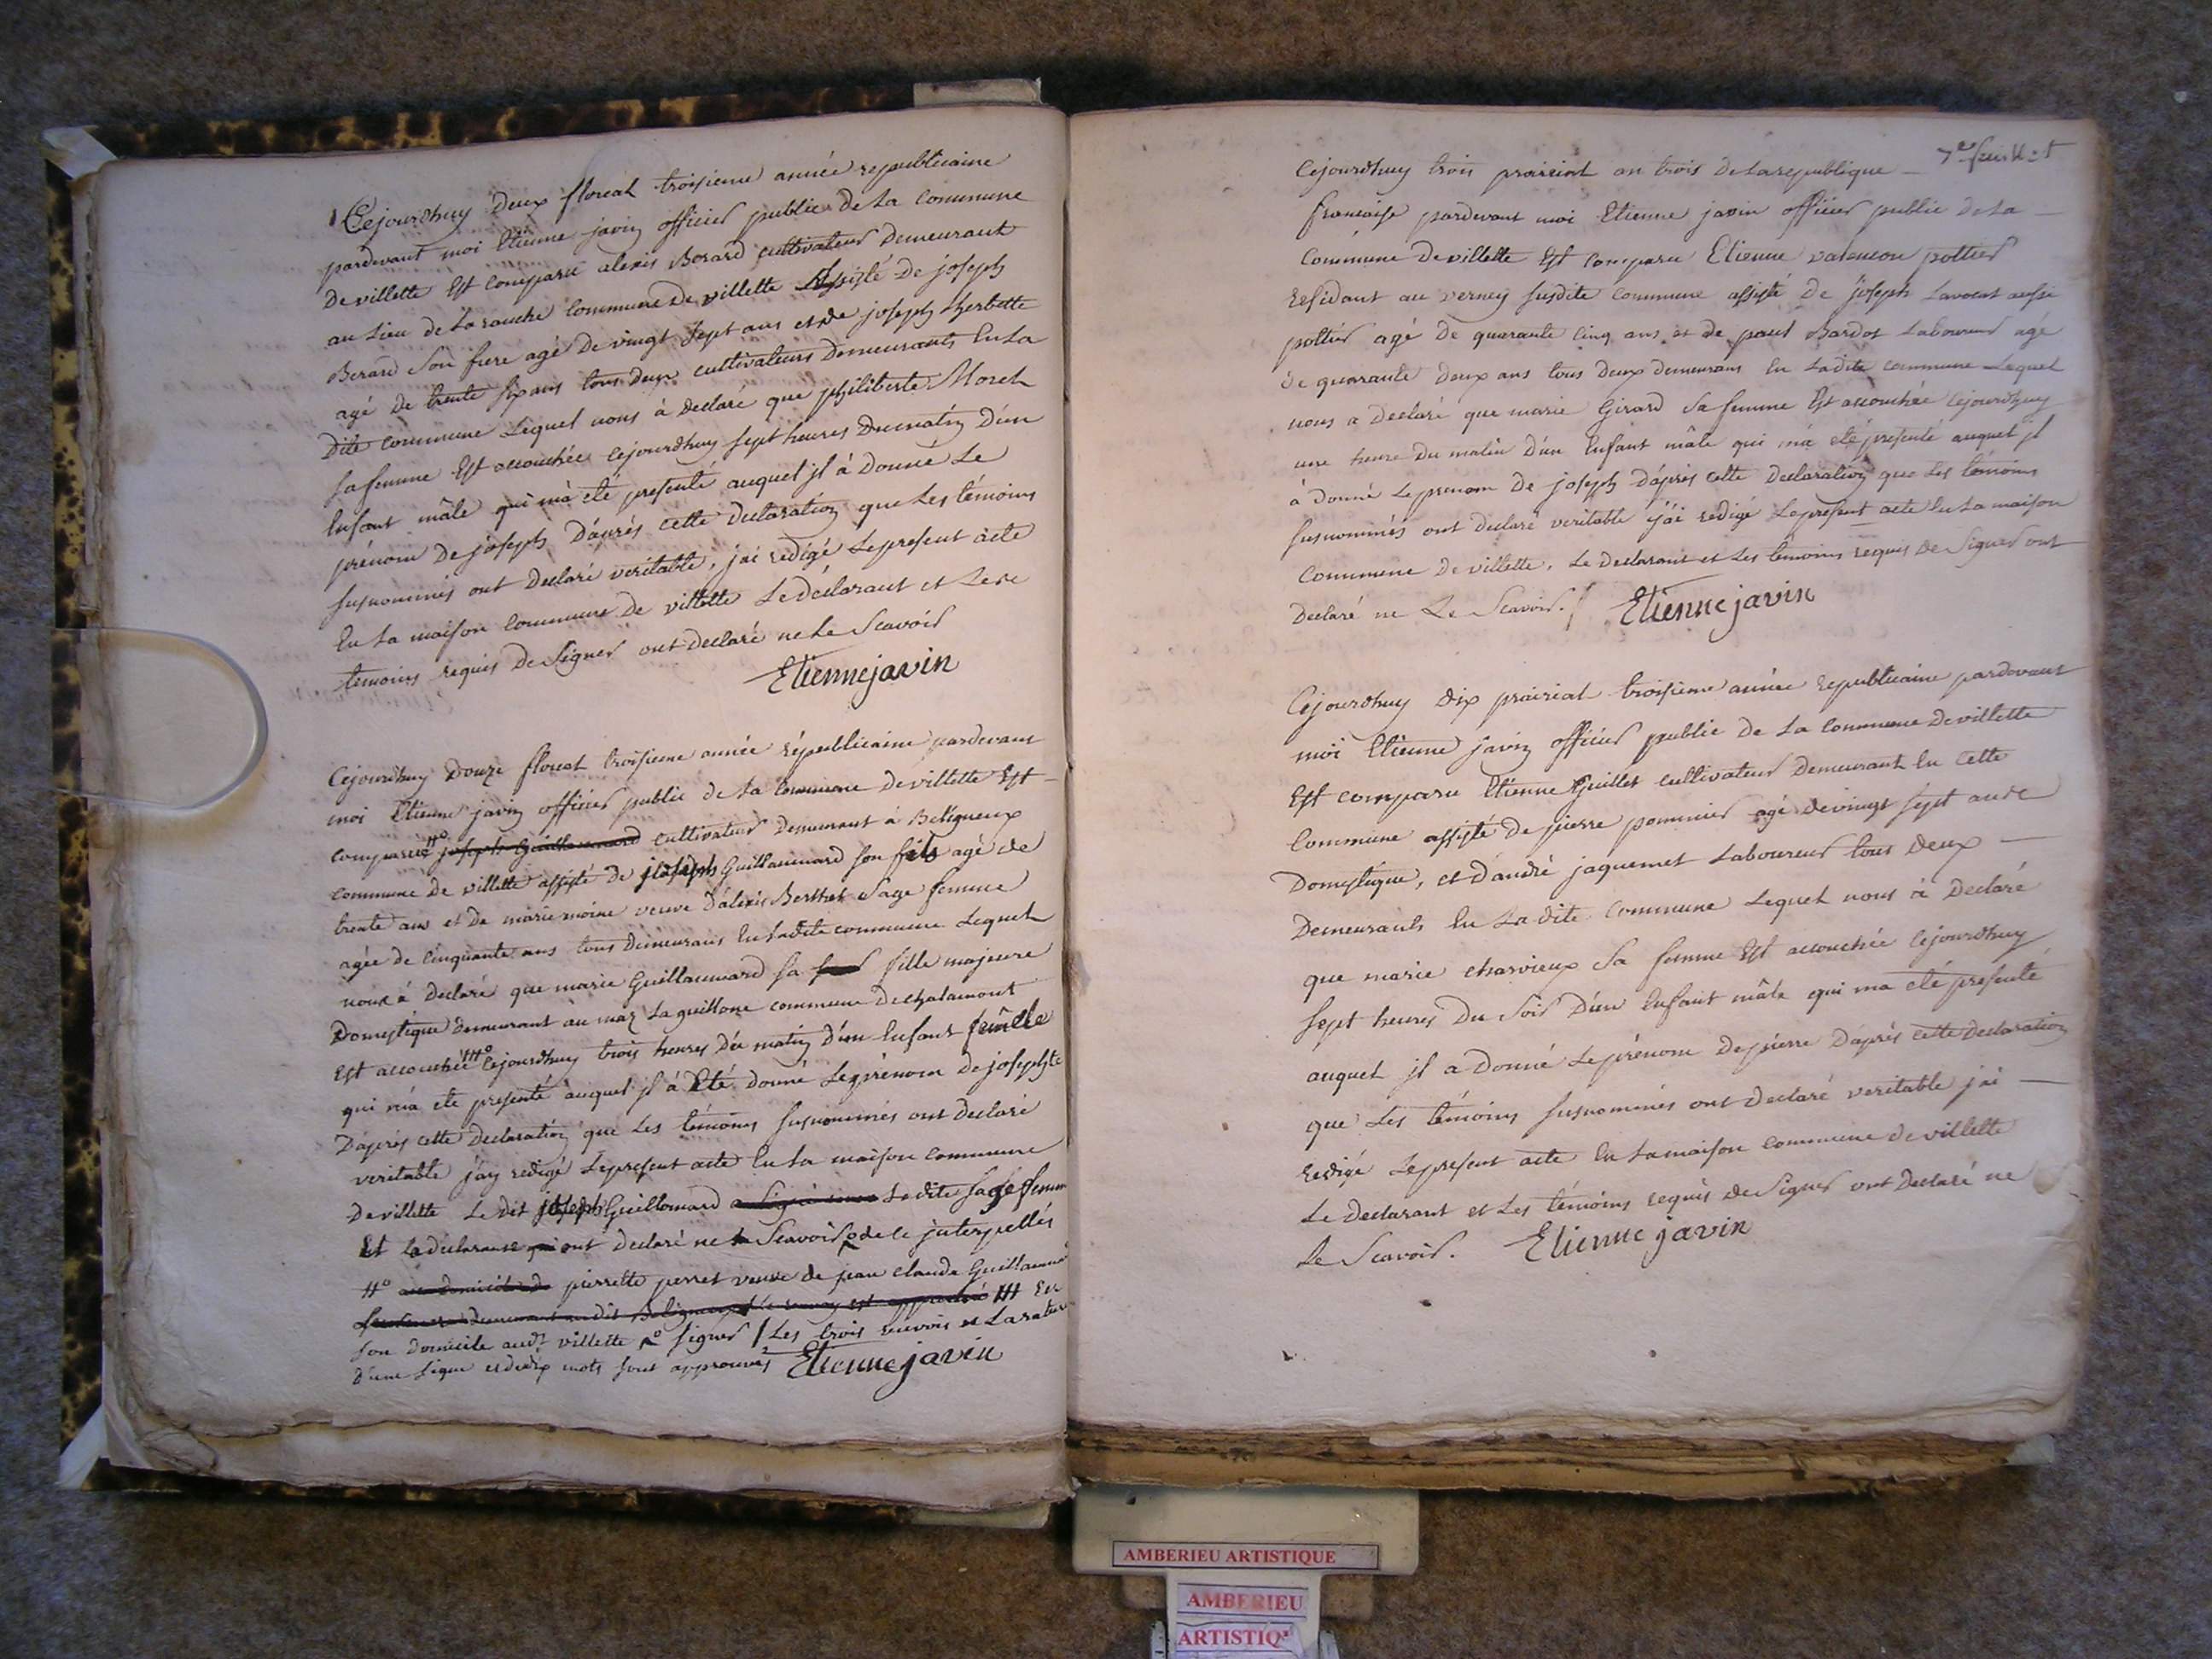 Cejourdhuy deux floreal troisieme année republicaine
pardevant moi Etienne javin officier public de la commune
de villette Est comparu alexis Berard cultivateur demeurant
au lieu de la rouche commune de villette assisté de joseph
Berard son frere agé de vingt sept ans et de joseph Lherbette
agé de trente six ans tous deux cultivateurs demeurants En la
dite commune Lequel nous à declaré que philiberte Morel
sa femme Est accouchée cejourdhuy sept heures du matin d'un
Enfant mâle qui mà eté presenté auquel jl à donné Le
prénom de joseph D'àprès cette declaration que Les témoins
susnommés ont declaré veritable, jai redigé Le present acte
En La maison commune de villette Le déclarant et Les
temoins requis de signer ont declaré ne Le Scavoir
Etienne javin
Cejourdhuy douze floreal troisieme année républicaine pardevant
moi Etienne javin officier public de La commune de villette Est
comparue #o joseph Guillaumard cultivateur demeurant à Beligneux
commune de villette assisté de joseph Guillaumard son fils agé de
trente ans et de marie moine veuve d'alexis Berthet Sage femme
agée de cinquante ans tous demeurans En Ladite commune Lequel
nous à declaré que marie Guillaumard sa fille majeure
Domestique demeurant au maz La guillone commune de chatamont
Est accouchée ###o cejourdhuy trois heures du matin d'un Enfant femelle
qui mà eté presenté auquel jl à Eté donné Le prénom de josephte
D'après cette declaration que Les témoins susnommés ont declaré
veritable jay redigé Le present acte En La maison commune
De villette Le dit joseph Guillomard a signé Ladite sage femme
Et La declarante ont declaré ne Scavoir de ce jnterpellés
#o pierrette perret veuve de jean claude Guillaumard
### En
son domicile audt villette signer / Les trois renvois et La rature
d'une Ligne et de dix mots sont approuvés Etienne javin
7e feuillet
Cejourdhuy trois prairial an trois de La republique
francaise pardevant moi Etienne javin officier public de La
Commune de villette Est comparu Etienne valencon pottier
résidant au verney susdite commune assisté de joseph Lavocat aussi
pottier agé de quarante cinq ans et de paul Bardot Laboureur agé
de quarante deux ans tous deux demeurans En Ladite commune Lequel
nous a declaré que marie Girard sa femme Est accouchée cejourdhuy
une heure du matin d'un Enfant mâle qui mà eté presenté auquel jl
à donné Le prenom de joseph D'après cette declaration que Les témoins
susnommés ont declaré veritable j'ai redigé Le present acte En La maison
Commune de villette, Le declarant et Les témoins requis de Signer ont
Declaré ne Le Scavoir. / Etienne javin
Cejourdhuy dix prairial troisieme année republicaine pardevant
moi Etienne javin officier public de La Commune de villette
Est comparu Etienne Guillet cultivateur demeurant En cette
Commune assisté de pierre pommier agé de vingt sept ans
Domestique, et d'andré jaquemet Laboureur tous deux
Demeurants En La dite commune Lequel nous à declaré
que marie charvieux sa femme Est accouchée cejourdhuy
sept heures du soir d'un Enfant mâle qui ma eté presenté
auquel jl a donné Le prénom de pierre D'après cette declaration
que Les témoins susnommés ont declaré veritable jai
redigé Le present acte En La maison commune de villette
Le declarant et Les témoins requis de Signer ont declaré ne
Le Scavoir. Etienne javin
AMBERIEU ARTISTIQUE
AMBERIEU
ARTISTIQ